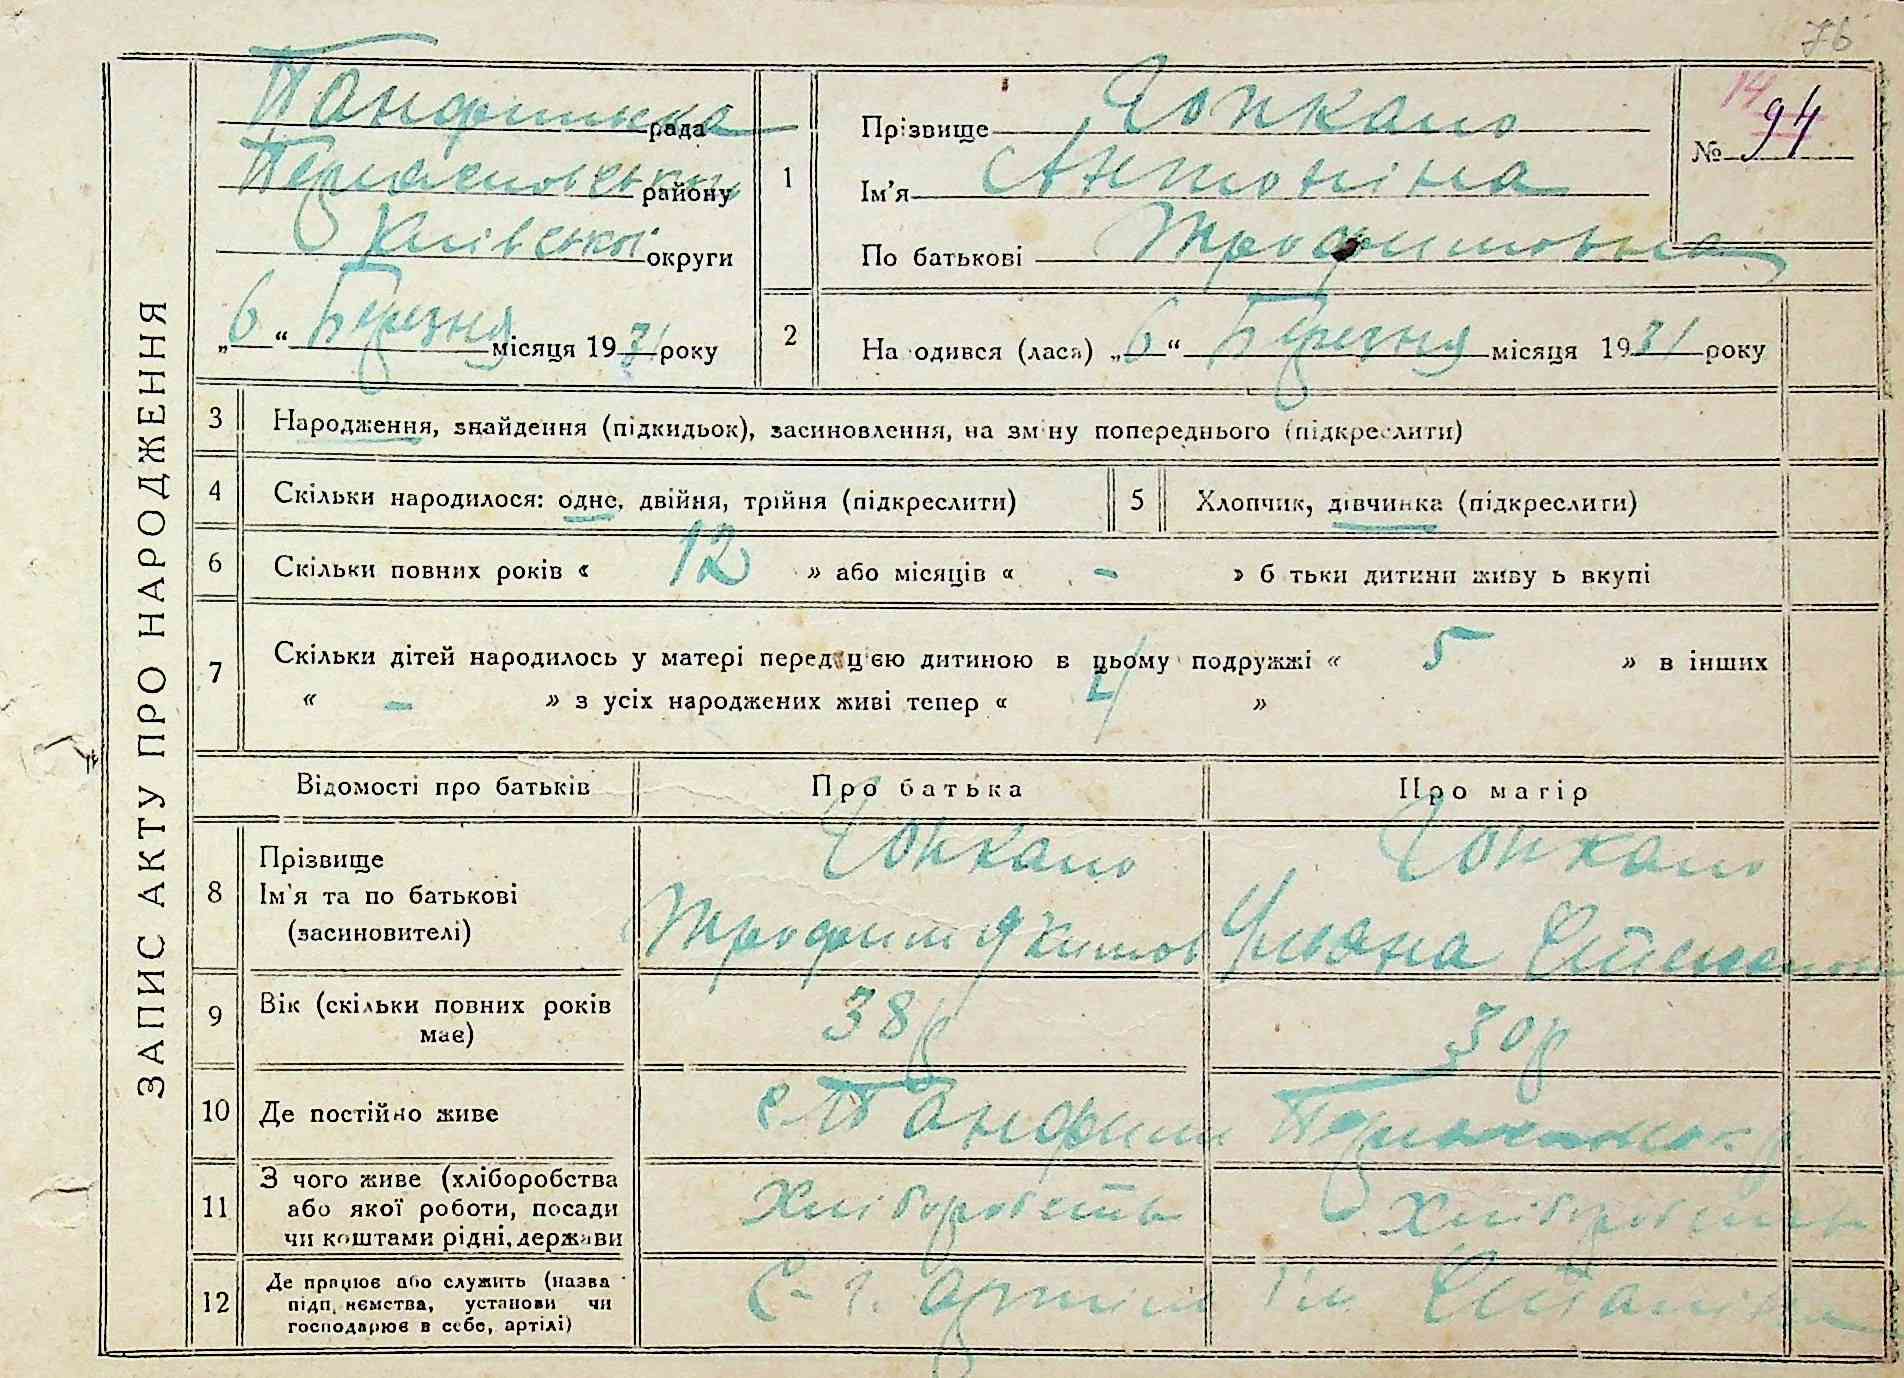 76
ЗАПИС АКТУ ПРО НАРОДЖЕННЯ
Панфилика рада
району
Київської округи
„6“ Березня місяця 1931 року
1
Прізвище Чопкало
Ім’я Антоніна
По батькові Трофимовна
№ 94
14
2
На одився (лася) „6“ Березня місяця 1931 року
3 Народження, знайдення (підкидьок), засиновлення, на зміну попереднього (підкреслити)
4 Скільки народилося: одне, двійня, трійня (підкреслити)
5 Хлопчик, дівчинка (підкреслити)
6 Скільки повних років « 12 » або місяців « - » б тьки дитини живу ь вкупі
7 Скільки дітей народилось у матері перед цією дитиною в цьому подружжі « 5 » в інших
« - » з усіх народжених живі тепер « 4 »
Відомості про батьків Про батька Про матір
8 Прізвище
Ім’я та по батькові
(засиновителі)
Чопкало
Трофим Якимов
Чопкало
Уляна
9 Вік (скільки повних років
має)
38 р
30 р
10 Де постійно живе
с Панфили
11 З чого живе (хліборобства
або якої роботи, посади
чи коштами рідні, держави
Хліборобств
Хліборобств
12 Де працює або служить (назва
підп.иємства, установи чи
господарює в себе, артілі)
С.-г. артіль ім Сталіна